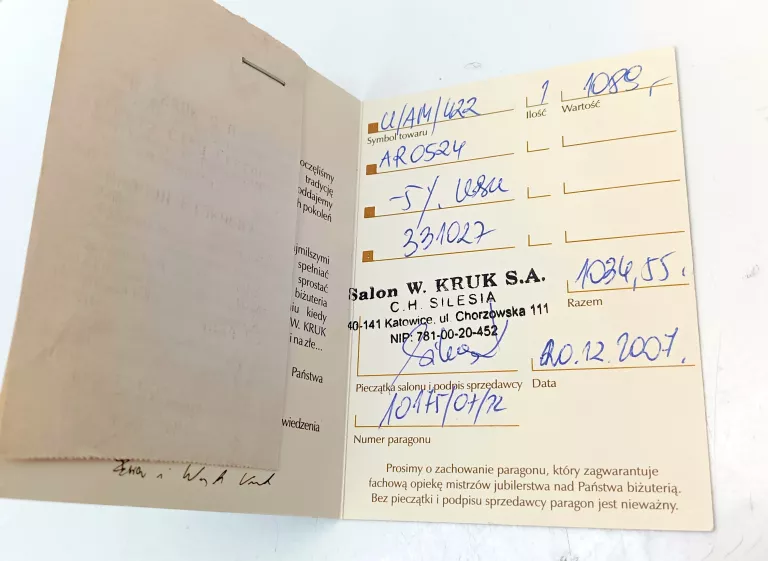 oczęliśmy
tradycję
oddajemy
h pokoleń
jmilszymi
spełniać
sprostać
biżuteria
iu kiedy
W. KRUK
i na złe...
Państwa
wiedzenia
U/AM/422 1 1089,-
Symbol towaru Ilość Wartość
AR0524
-5%
331027
Salon W. KRUK S.A.
C.H. SILESIA
40-141 Katowice, ul Chorzowska 111
NIP: 781-00-20-452
1034,55.
Razem
20.12.2007.
Pieczątka salonu i podpis sprzedawcy Data
Numer paragonu
Prosimy o zachowanie paragonu, który zagwarantuje
fachową opiekę mistrzów jubilerstwa nad Państwa biżuterią.
Bez pieczątki i podpisu sprzedawcy paragon jest nieważny.